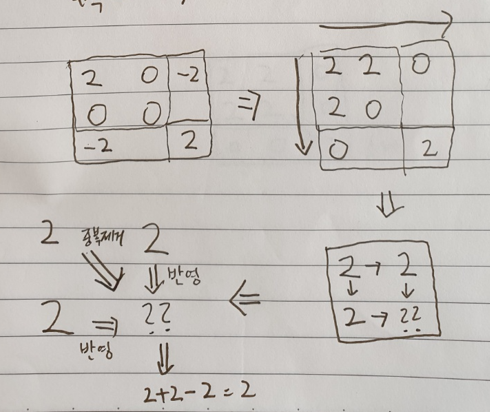 2 0 -2
0 0
-2 2
⇒
2 2 0
2 0
0 2
⇓
2 → 2
↓ ↓
2 → ??
⇐
2 중복제거 2
⇓ 반영
2 ⇒ ??
반영
⇓
2+2-2=2